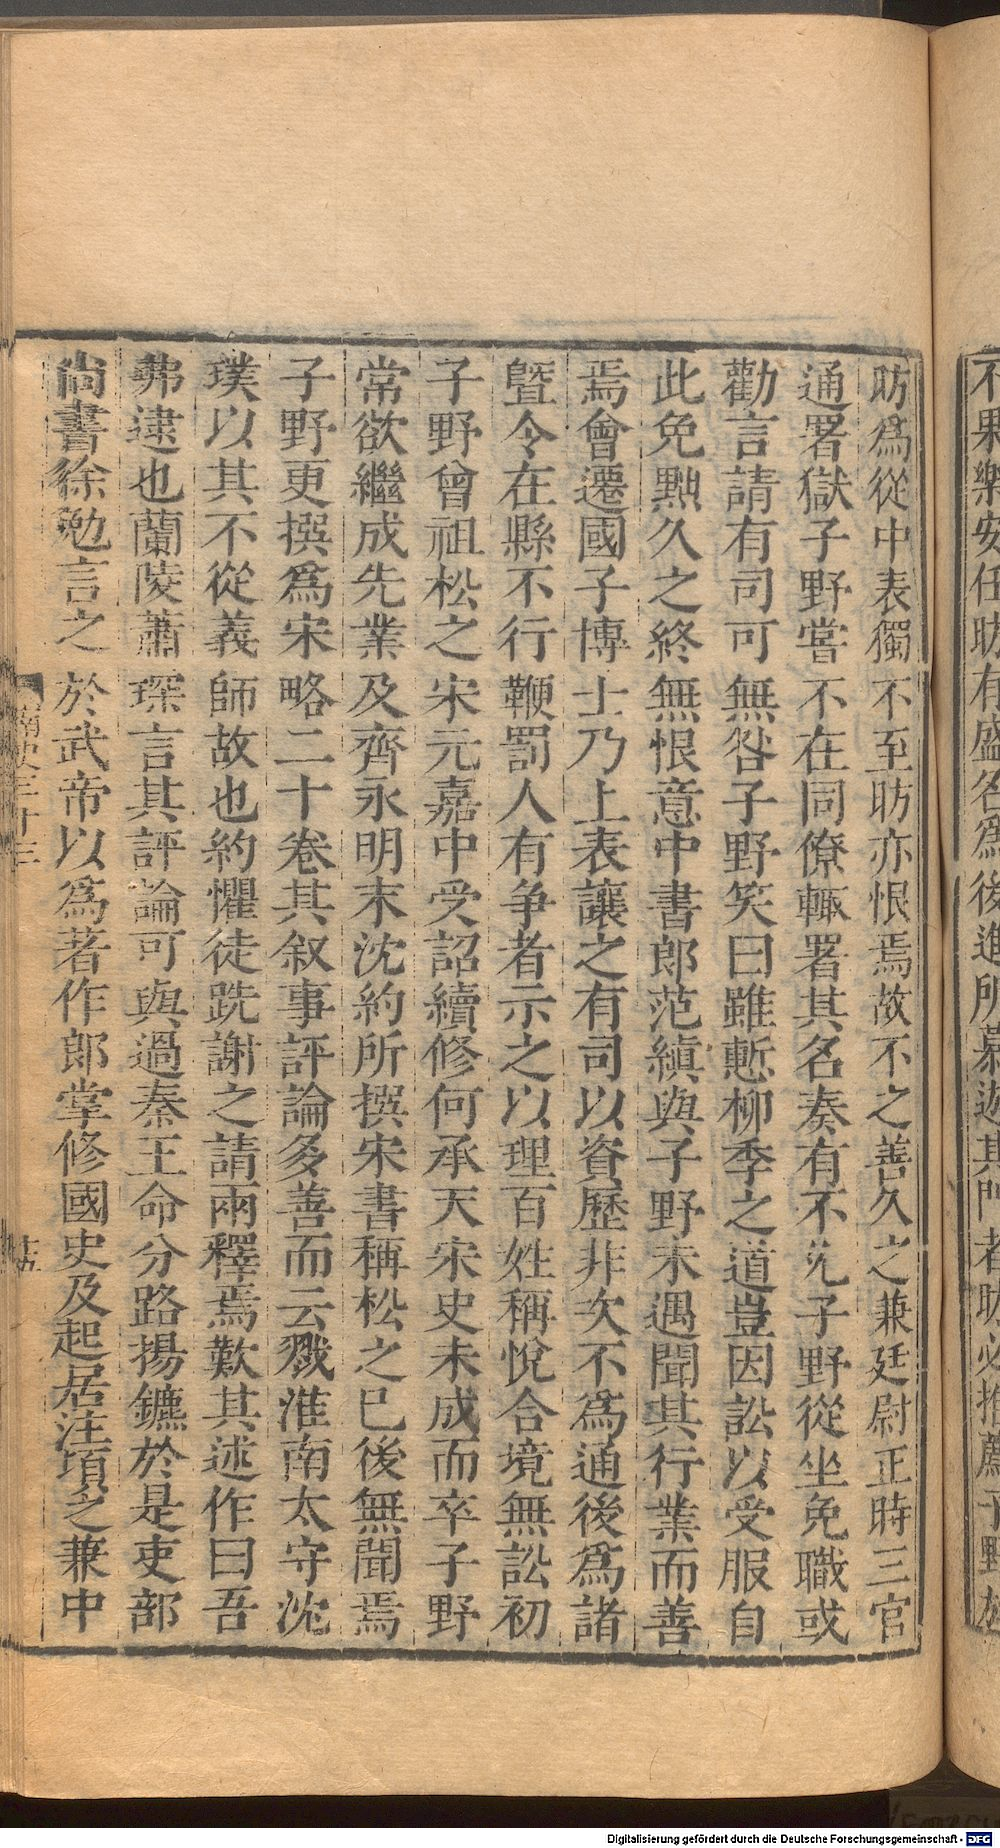 不果樂安任昉有盛名為後進所慕遊其門者昉必推薦子野於
昉爲從中表獨不至昉亦恨焉故不之善久之兼廷尉正時三官
通署獄子野嘗不在同僚輒署其名奏有不允子野從坐免職或
勸言請有司可無咎子野笑曰雖慙柳季之道豈因訟以受服自
此免黜久之終無恨意中書郎范縝與子野未遇聞其行業而善
焉會遷國子博士乃上表讓之有司以資歷非次不爲通後爲諸
曁令在縣不行鞭罰人有争者示之以理百姓稱悅合境無訟初
子野曾祖松之宋元嘉中受詔續修何承天宋史未成而卒子野
常欲繼成先業及齊永明末沈約所撰宋書稱松之已後無聞焉
子野更撰爲宋略二十卷其叙事評論多善而云戮淮南太守沈
璞以其不從義師故也約懼徒跣謝之請兩釋焉歎其述作曰吾
弗逮也蘭陵蕭琛言其評論可與過秦王命分路揚鑣於是吏部
尚書徐勉言之於武帝以爲著作郎掌修國史及起居注頃之兼中
南史三十三
十九
Digitalisierung gefördert durch die Deutsche Forschungsgemeinschaft - DFG